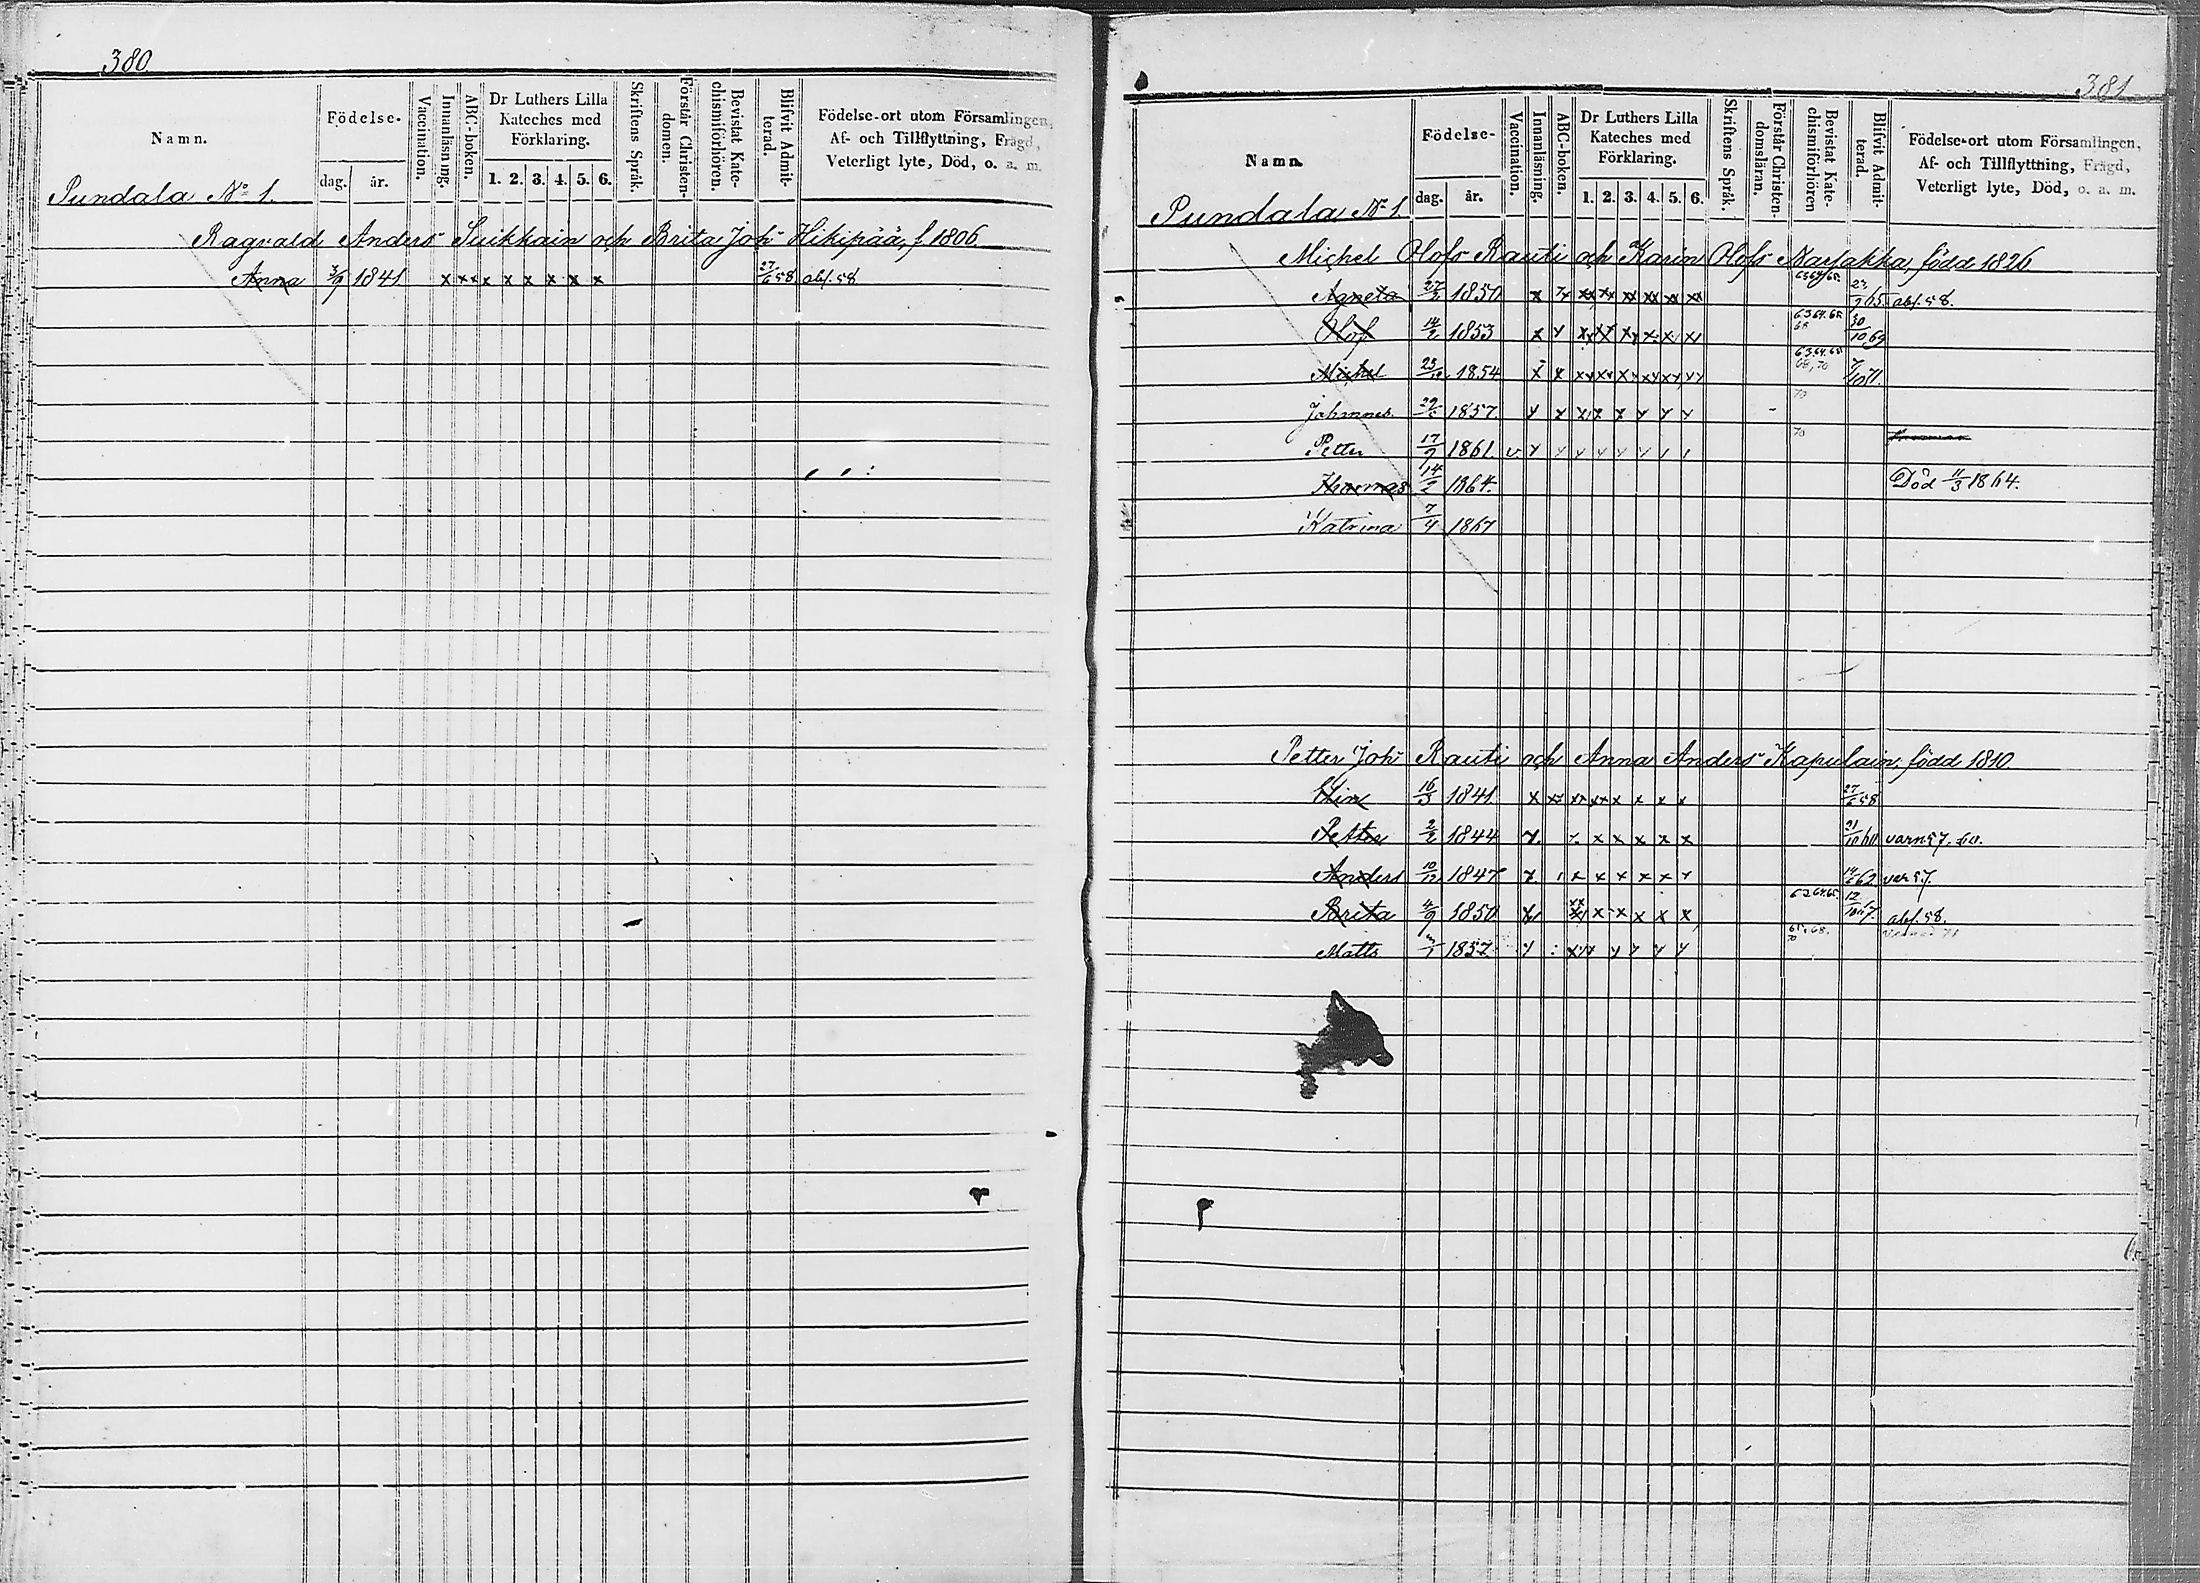 380
Namn. Födelse- dag. år. Vaccination. Innanläsning. ABC-boken. Dr Luthers Lilla Kateches med Förklaring. 1. 2. 3. 4. 5. 6. Skriftens Språk. Förstår Christendomen. Bevistat Katechismiförhören. Blifvit Admitterad. Födelse-ort utom Församlingen, Af- och Tillflyttning, Frägd, Veterligt lyte, Död, o. a. m.
Pundala No 1.
Ragvald Anders Suikkain och Brita Joh Hikipää, f 1806
Anna 3/9 1841 x x x x x x x x x 27/6 58 abs. 58
381
Namn. Födelse- dag. år. Vaccination. Innanläsning. ABC-boken. Dr Luthers Lilla Kateches med Förklaring. 1. 2. 3. 4. 5. 6. Skriftens Språk. Förstår Christendomsläran. Bevistat Katechismiförhören Blifvit Admitterad. Födelse-ort utom Församlingen, Af- och Tillflyttning, Frägd, Veterligt lyte, Död, o. a. m.
Pundala No 1.
Michel Olofs Rauti och Karin Olofs Marsakka, född 1826
Agneta 1850 23/9 65 abs. 58.
Olof 14/2 1853 63.64.65 68 30/10 69
Michel 1854 63.64.65 68, 70
Johannes. 1857. 70
Petter 17/9 1861. 70
Thomas 14/2 1864. Död 11/3 1864.
Katrina 7/4 1867
Petter Joh Rauti och Anna Anders Kapulain, född 1810.
Elin 16/3 1841 27/6 58
Petter 2/2 1844 21/10 60 varn 57. 60.
Anders 10/12 1847 62
Brita 4/9 1850 63 64.65. 12/10 67. abs. 58.
Matts 1857. 65, 68. 70